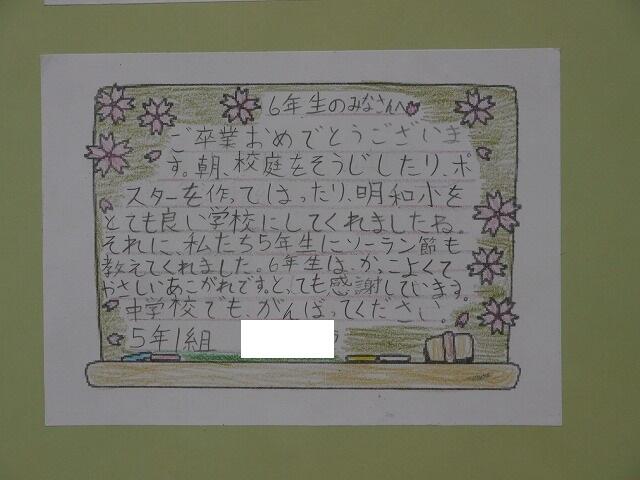 6年生のみなさんへ
ご卒業おめでとうございま
す。朝、校庭をそうじしたり、ポ
スターを作ってはったり、明和小を
とても良い学校にしてくれましたね。
それに、私たち5年生にソーラン節も
教えてくれました。6年生は、かっこよくて
やさしいあこがれです。とっても感謝しています。
中学校でも、がんばってください。
5年1組